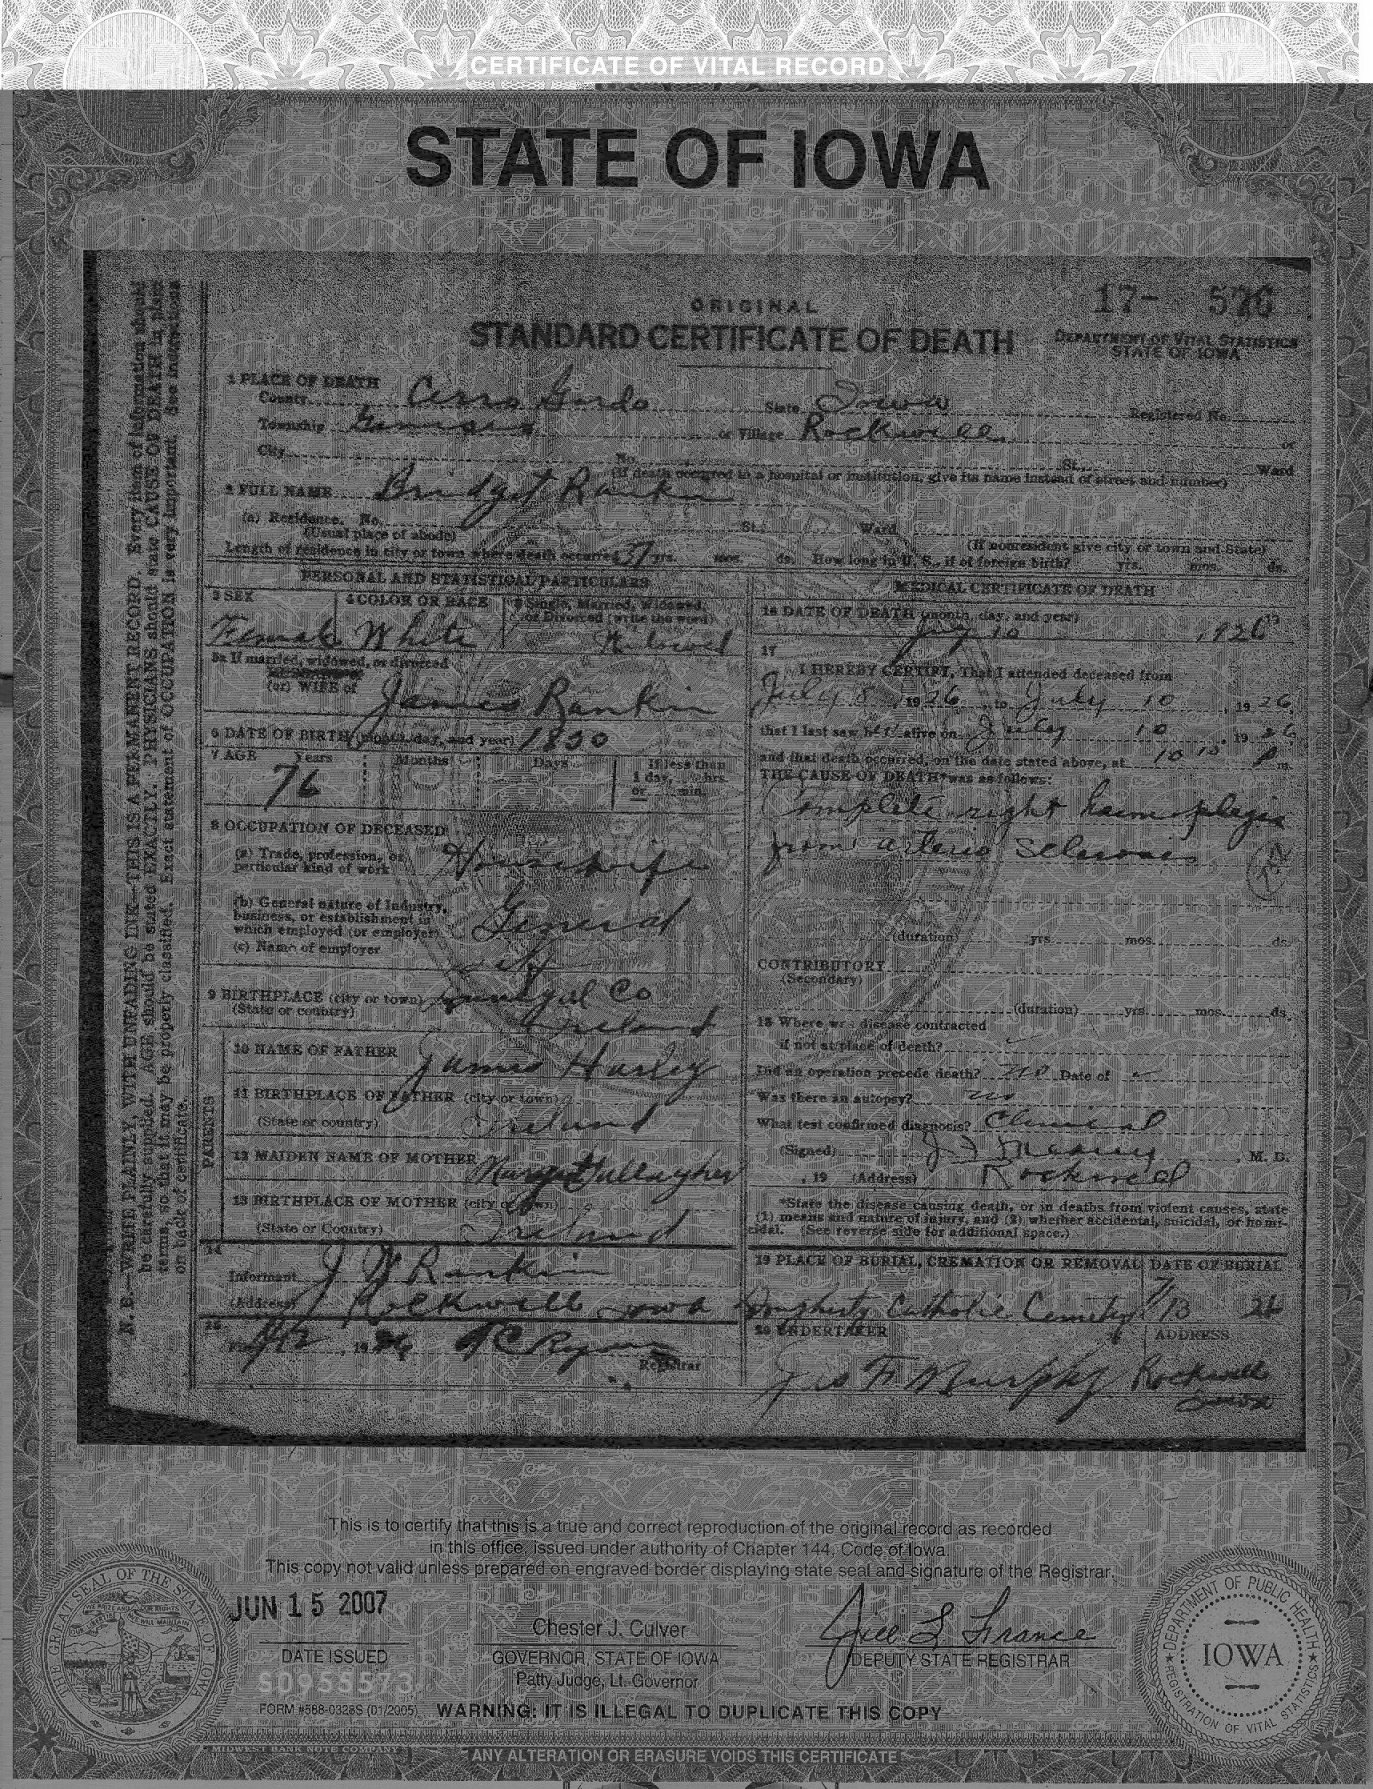 CERTIFICATE OF VITAL RECORD
STATE OF IOWA
17- 576
ORIGINAL
STANDARD CERTIFICATE OF DEATH
DEPARTMENT OF VITAL STATISTICS
STATE OF IOWA
1 PLACE OF DEATH
County Cerro Gordo State Iowa Registered No.
Township or Village Rockwell or
City No. St. Ward
(If death occurred in a hospital or institution, give its name instead of street and number)
2 FULL NAME Bridget Rankin
(a) Residence. No. St. Ward
(Usual place of abode) (If nonresident give city or town and State)
Length of residence in city or town where death occurred yrs. mos. ds. How long in U. S., if of foreign birth? yrs. mos. ds.
PERSONAL AND STATISTICAL PARTICULARS
3 SEX 4 COLOR OR RACE 5 Single, Married, Widowed, or Divorced (write the word)
Female White Widowed
5a If married, widowed, or divorced
(or) WIFE of James Rankin
6 DATE OF BIRTH (month, day, and year) 1850
7 AGE Years Months Days If less than 1 day, hrs. or min.
76
8 OCCUPATION OF DECEASED
(a) Trade, profession, or particular kind of work Housewife
(b) General nature of Industry, business, or establishment in which employed (or employer) General
(c) Name of employer
9 BIRTHPLACE (city or town) Co
(State or country) Ireland
PARENTS
10 NAME OF FATHER James Harley
11 BIRTHPLACE OF FATHER (city or town)
(State or country) Ireland
12 MAIDEN NAME OF MOTHER Gallagher
13 BIRTHPLACE OF MOTHER (city or town)
(State or Country) Ireland
14
Informant J W Rankin
(Address) Rockwell Iowa
15
Filed 1926 Ryan
Registrar
MEDICAL CERTIFICATE OF DEATH
16 DATE OF DEATH (month, day, and year)
July 10 1926
17
I HEREBY CERTIFY, That I attended deceased from
July 8, 1926, to July 10, 1926,
that I last saw her alive on July 10 1926
and that death occurred, on the date stated above, at 10 10 P m.
THE CAUSE OF DEATH* was as follows:
Complete right hemiplegia
from arterio sclerosis
(duration) yrs. mos. ds.
CONTRIBUTORY
(Secondary)
(duration) yrs. mos. ds.
18 Where was disease contracted
if not at place of death?
Did an operation precede death? no Date of
Was there an autopsy? no
What test confirmed diagnosis? Clinical
(Signed) M. D.
, 19 (Address) Rockwell
*State the disease causing death, or in deaths from violent causes, state
(1) means and nature of injury, and (2) whether accidental, suicidal, or homi-
cidal. (See reverse side for additional space.)
19 PLACE OF BURIAL, CREMATION OR REMOVAL DATE OF BURIAL
Dougherty Catholic Cemetery 7/13 26
20 UNDERTAKER ADDRESS
Jas F Murphy Rockwell
Iowa
N. B.—WRITE PLAINLY, WITH UNFADING INK—THIS IS A PERMANENT RECORD. Every item of information should
be carefully supplied. AGE should be stated EXACTLY. PHYSICIANS should state CAUSE OF DEATH in plain
terms, so that it may be properly classified. Exact statement of OCCUPATION is very important. See instructions
on back of certificate.
This is to certify that this is a true and correct reproduction of the original record as recorded
in this office, issued under authority of Chapter 144, Code of Iowa.
This copy not valid unless prepared on engraved border displaying state seal and signature of the Registrar.
THE GREAT SEAL OF THE STATE OF IOWA
JUN 15 2007
DATE ISSUED
S0955573
FORM #588-0328S (01/2005)
Chester J. Culver
GOVERNOR, STATE OF IOWA
Patty Judge, Lt. Governor
Jill L France
DEPUTY STATE REGISTRAR
DEPARTMENT OF PUBLIC HEALTH
IOWA
REGISTRATION OF VITAL STATISTICS
WARNING: IT IS ILLEGAL TO DUPLICATE THIS COPY
MIDWEST BANK NOTE COMPANY
ANY ALTERATION OR ERASURE VOIDS THIS CERTIFICATE